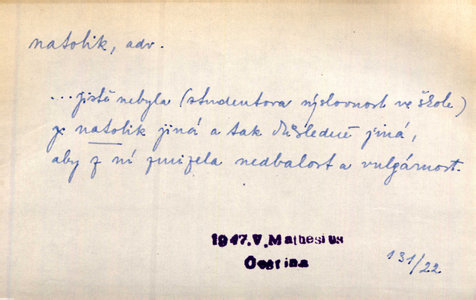 natolik, adv.
... jistě nebyla (studentova výslovnost ve škole)
natolik jiná a tak důsledně jiná,
aby z ní zmizela nedbalost a vulgárnost.
1947.V.Mathesius
131/22